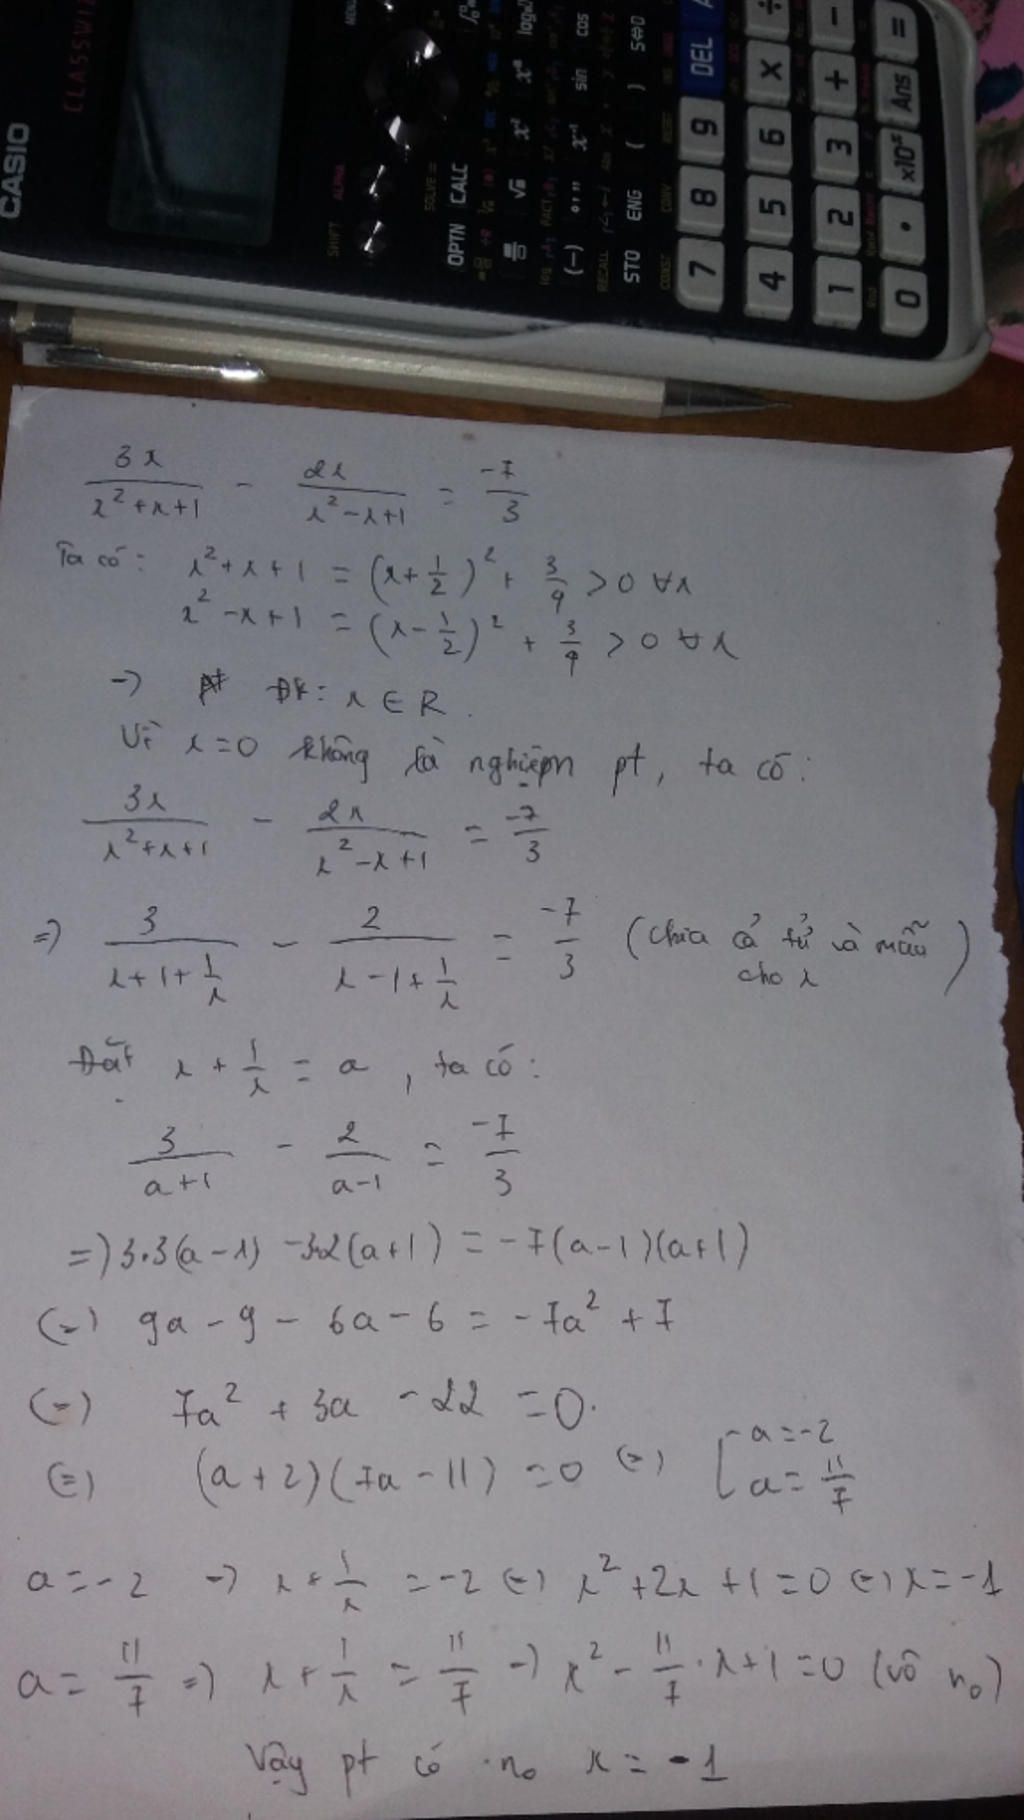 CASIO
CLASSWIZ
MENU
SHIFT ALPHA
SOLVE =
OPTN CALC
√ x² xⁿ
(−) °,,, x⁻¹ sin cos
RECALL
STO ENG ( ) S⇔D
CONST CONV RESET
7 8 9 DEL
4 5 6 × ÷
1 2 3 + −
0 . ×10ˣ Ans =
3x/(x²+x+1) - 2x/(x²-x+1) = -7/3
Ta có: x²+x+1 = (x+1/2)² + 3/4 >0 ∀x
x²-x+1 = (x-1/2)² + 3/4 >0 ∀x
-> ĐK: x ∈ R.
Vì x=0 không là nghiệpm pt, ta có:
3x/(x²+x+1) - 2x/(x²-x+1) = -7/3
=> 3/(x+1+1/x) - 2/(x-1+1/x) = -7/3 (chia cả tử và mẫu
cho x)
Đặt x + 1/x = a, ta có:
3/(a+1) - 2/(a-1) = -7/3
=> 3.3(a-1) -3.2(a+1) = -7(a-1)(a+1)
(=) 9a - 9 - 6a - 6 = -7a² + 7
(=) 7a² + 3a - 22 = 0.
(=) (a+2)(7a-11) = 0 (=) [ a = -2
a = 11/7
a = -2 -> x + 1/x = -2 (=) x²+2x+1=0 (=) x=-1
a = 11/7 => x + 1/x = 11/7 -> x² - 11/7 . x+1=0 (vô no)
Vậy pt có no x = -1